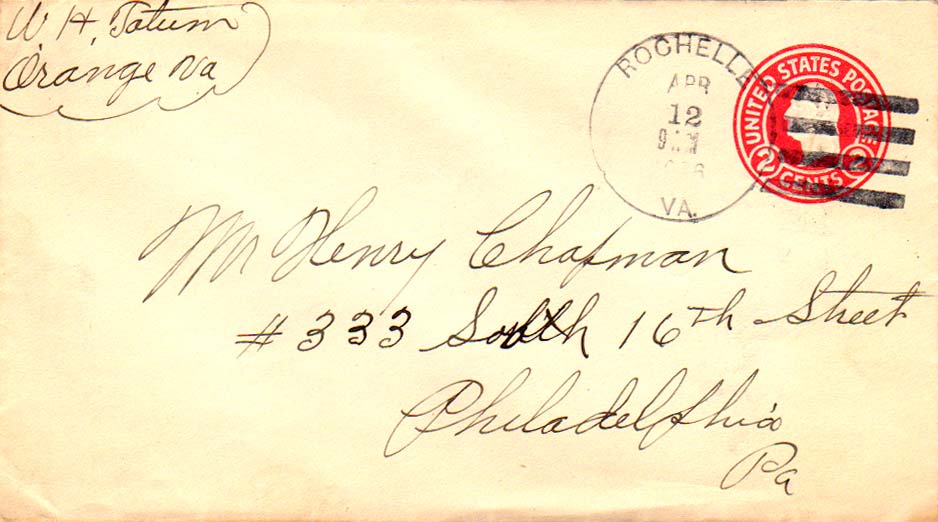 W. H. Tatum
Orange Va
ROCHELLE
APR
12
9 AM
VA.
UNITED STATES POSTAGE
2 CENTS 2
Mr Henry Chapman
# 333 South 16th Street
Philadelphia
Pa